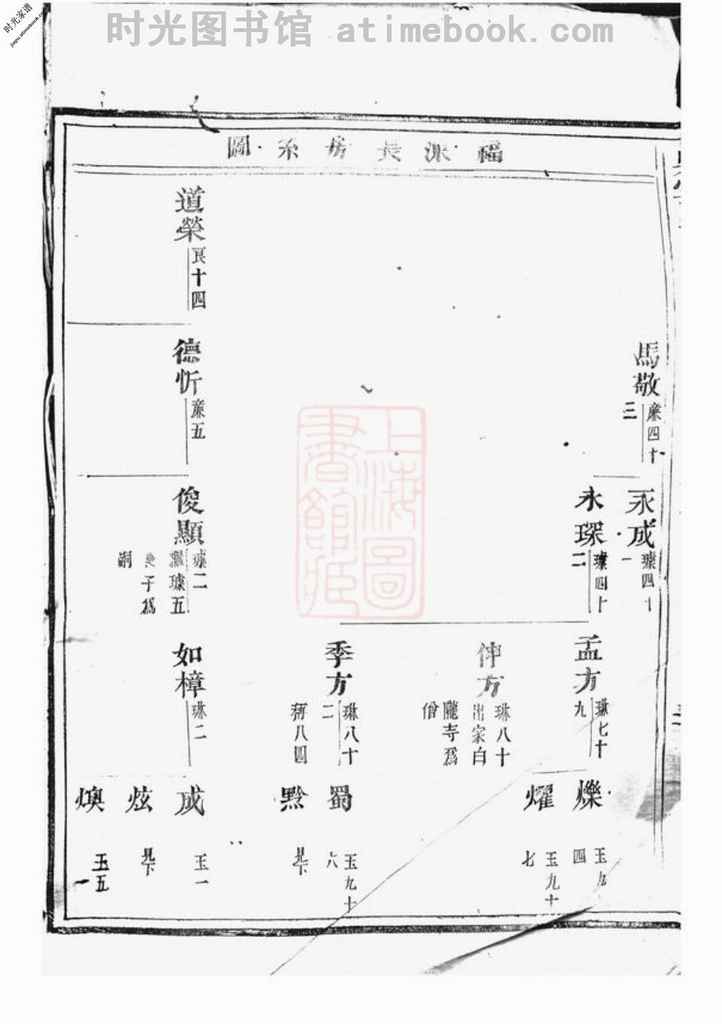 时光图书馆 atimebook.com
时光家谱
福派長房系圖
馬敬
廉四十
三
永成
璩四十
一
永琛
璩四十
二
孟方
琳七十
九
爍
玉九
四
燿
玉九十
七
仲方
琳八十
出家白
龍寺爲
僧
季方
琳八十
二
蜀
玉九十
六
黙
見下
道榮
良十四
德忻
廉五
俊顯
璩二
璩五
子爲
嗣
如樟
琳二
成
玉一
炫
見下
燠
玉五
上海圖書館藏